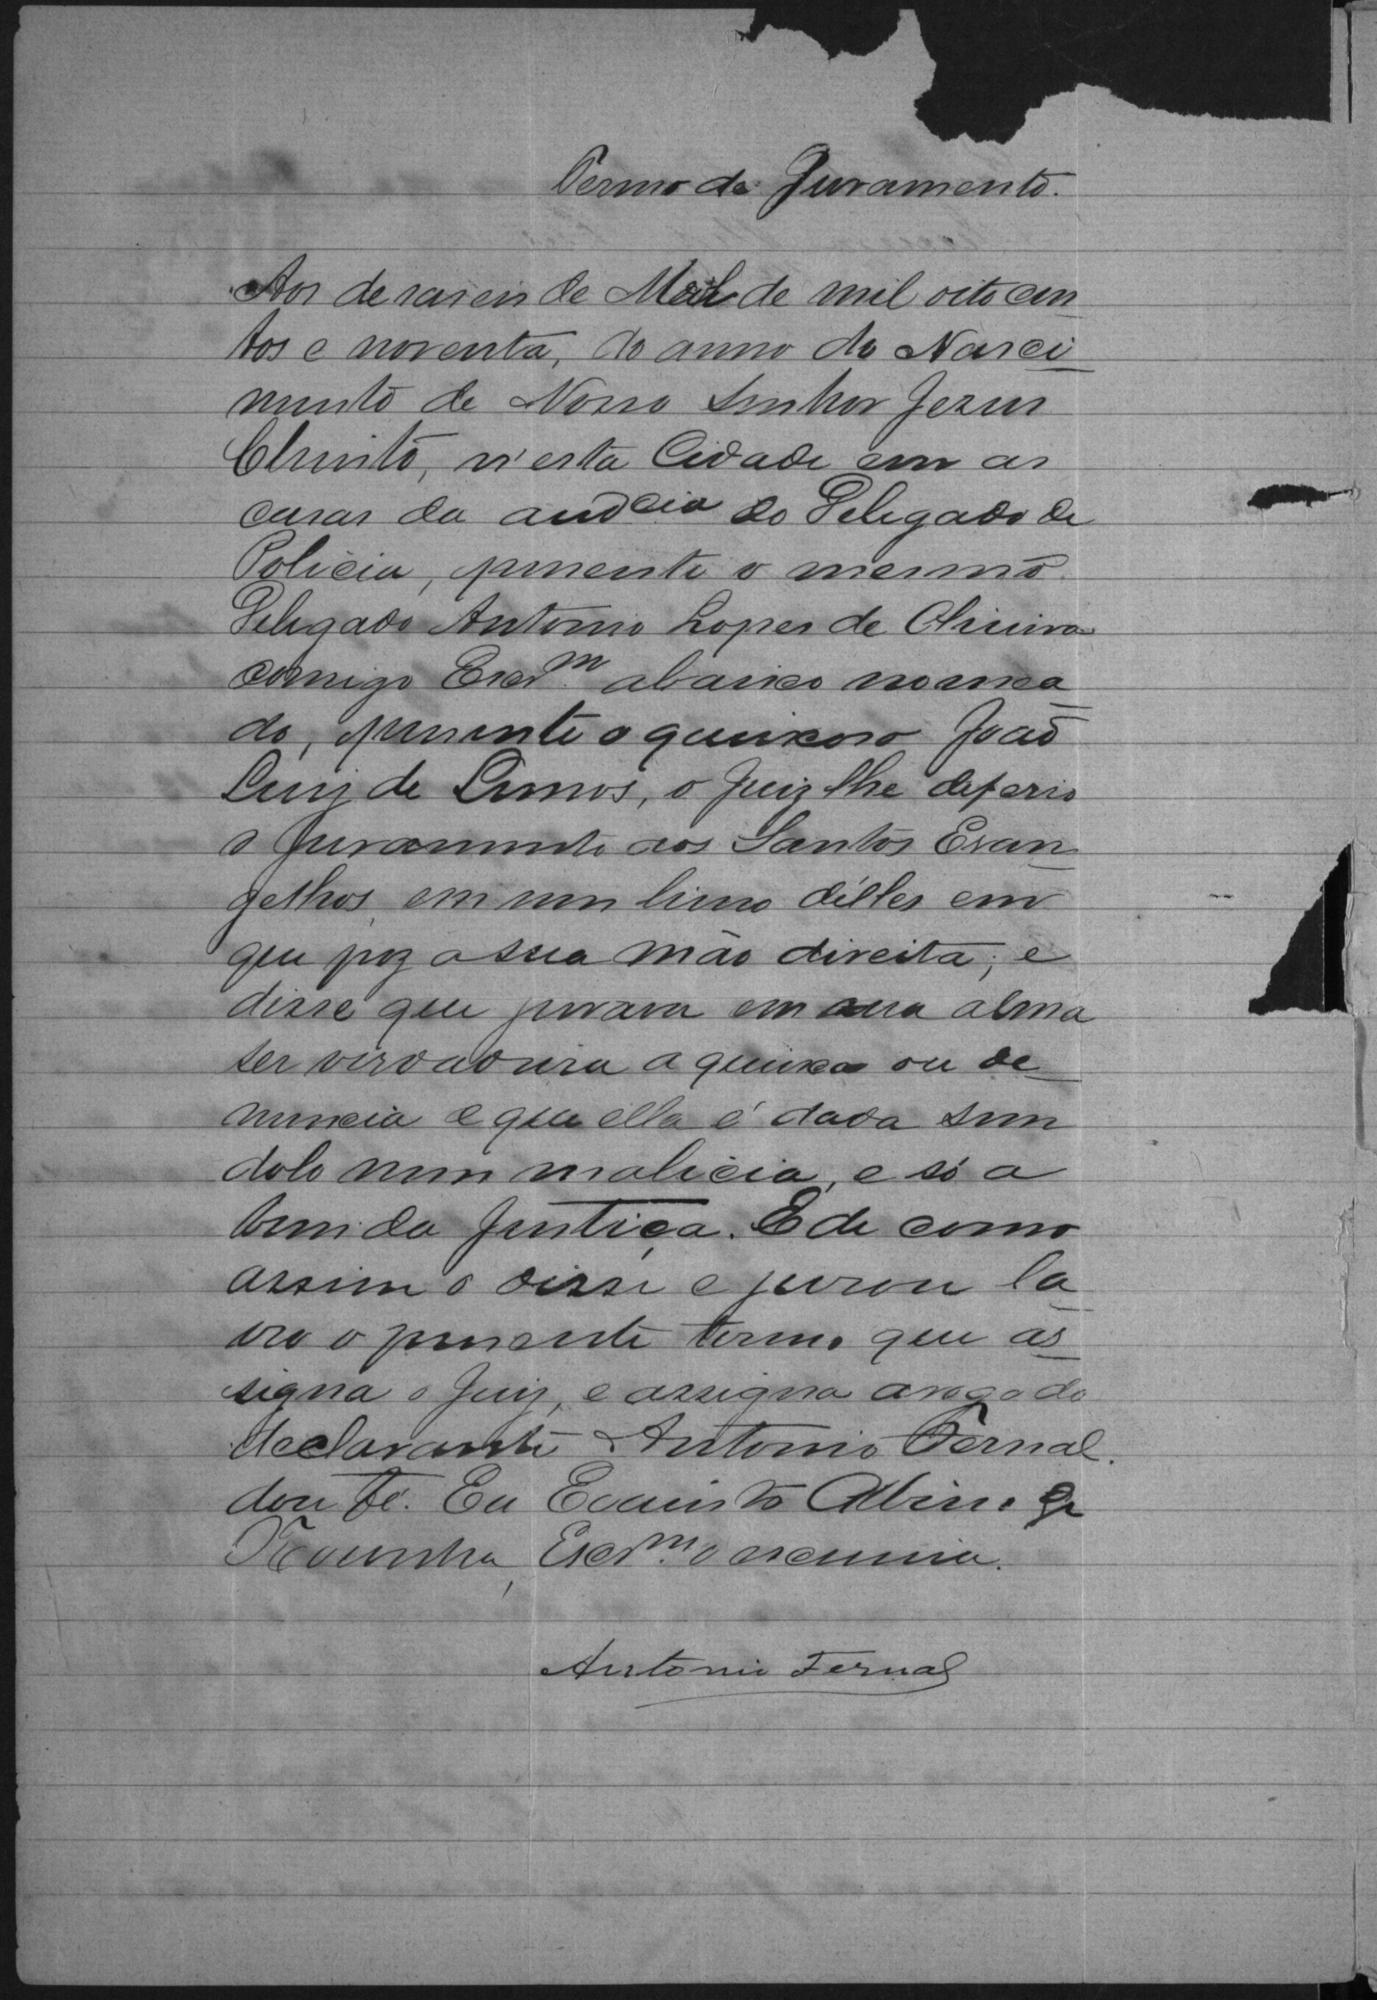 Termo de Juramento.
Aos deraseis de de mil oitocen
tos e noventa, do anno do Nasci
mento de Nosso Senhor Jezus
Christo, n'esta Cidade em as
casas da audcia do Delegado de
Policia, presente o mesmo
Delegado Antonio Lopes de Oliveira
comigo Escrm abaixo nomea
do, presente o queixoso João
Luiz de Lemos, o Juiz lhe deferio
o juramento aos Santos Evan
gelhos em um livro délles em
que poz a sua mão direita; e
disse que jurava em sua alma
ser verdadeira a queixa ou de
nuncia e que ella é dada sem
dolo nem malicia, e só a
bem da Justiça. E de como
assim o disse e jurou la
vro o presente termo que as
signa o Juiz, e assigna arogo do
declarante Antonio Fernal.
dou fé. Eu Evaristo
Escrm o escrevia.
Antonio Fernal